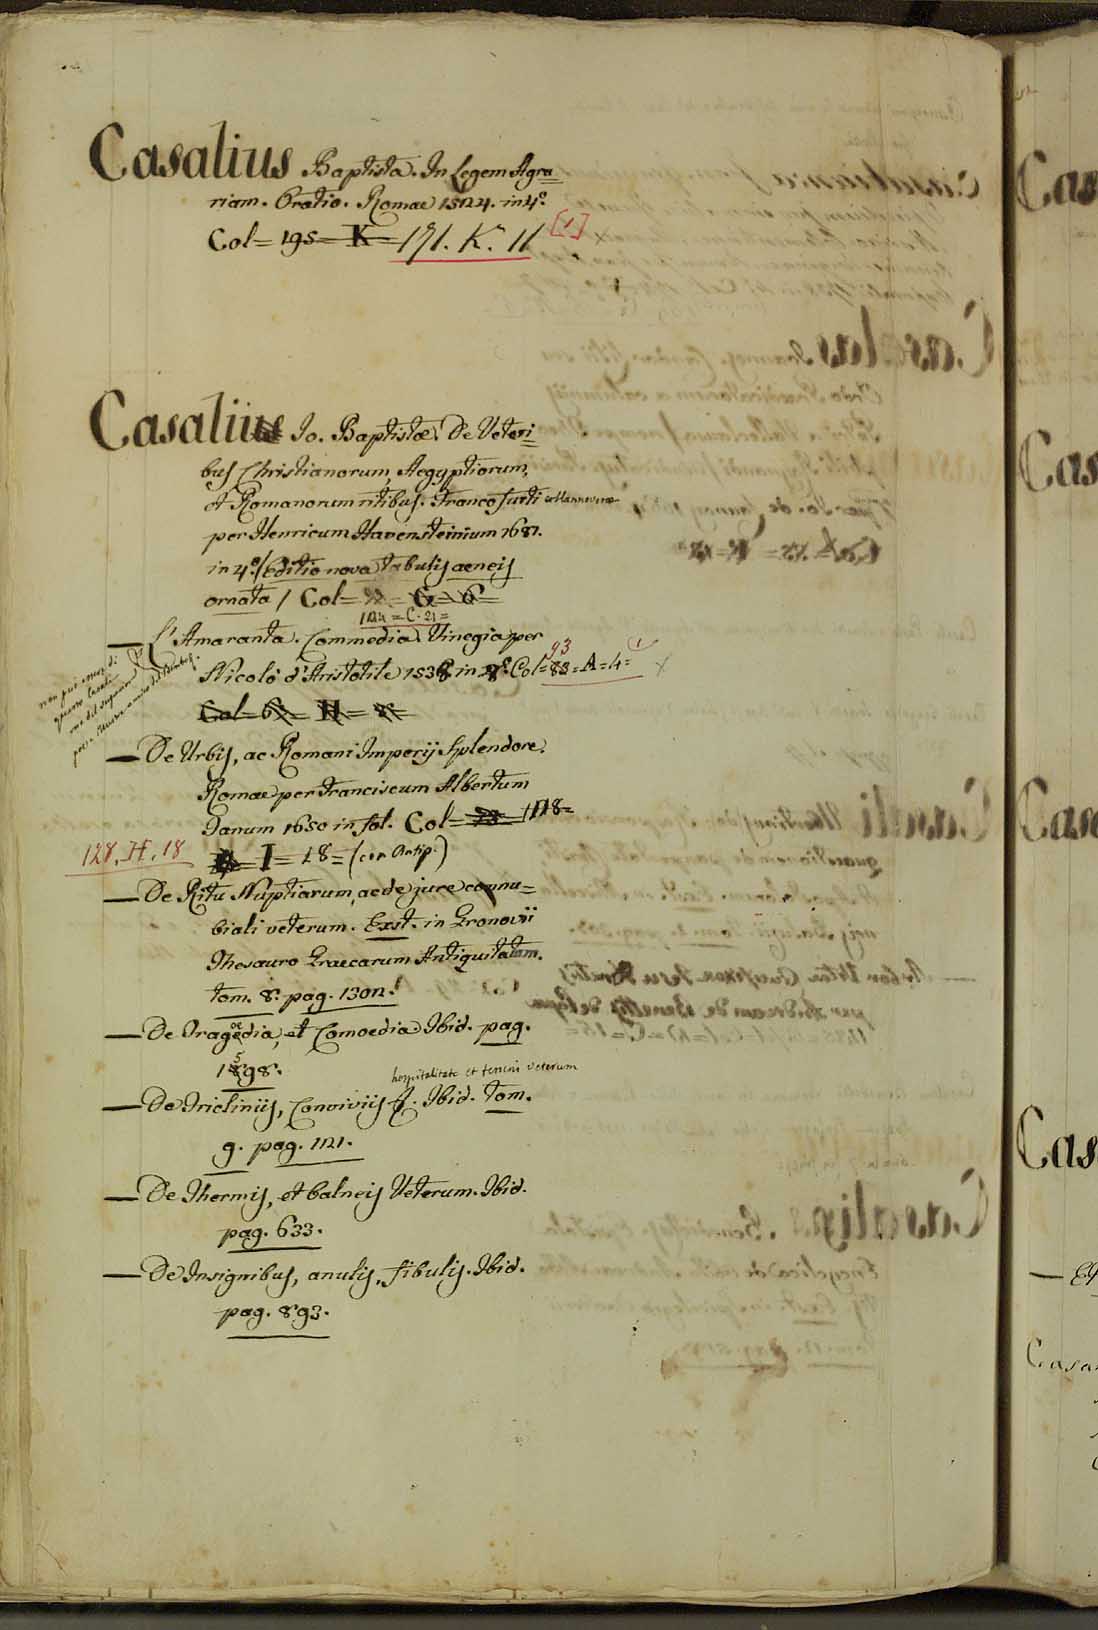 Casalius Baptista. In Legem Agra=
riam. Oratio. Romae 1524. in 4°.
Col = 195 = K = 191. K. 11 [1]
Casalii Io. Baptistae. De Veteri=
bus Christianorum, Aegyptiorum,
et Romanorum ritibus. Francofurti et Hannoverae
per Henricum Havensteinium 1681.
in 4°. / Editio nova tabulis aeneis
ornata / Col = G = 6 =
= C. 21 =
— L'Amaranta. Commedia. Vinegia per
Nicolò d'Aristotile 1538 in 8°. Col = 88 = A = 4 = 93
non può esser di
questo Casali
Col = 6 = H = 8 =
— De Urbis, ac Romani Imperij splendore.
Romae per Franciscum Albertum
Tanum 1650 in fol. Col = 118 =
128. H. 18
I = 18 = (con Antip.)
— De Ritu Nuptiarum, ac de jure connu=
biali veterum. Exst. in Gronovii
Thesauro Graecarum Antiquitatum.
tom. 8. pag. 1302.
— De Tragoedia, et Comoedia Ibid. pag.
1598.
hospitalitate et tesseris veterum
— De Tricliniis, Conviviis &. Ibid. tom.
9. pag. 121.
— De Thermis, et balneis Veterum. Ibid.
pag. 633.
— De Insignibus, anulis, fibulis. Ibid.
pag. 893.
Cas
Cas
Cas
Cas